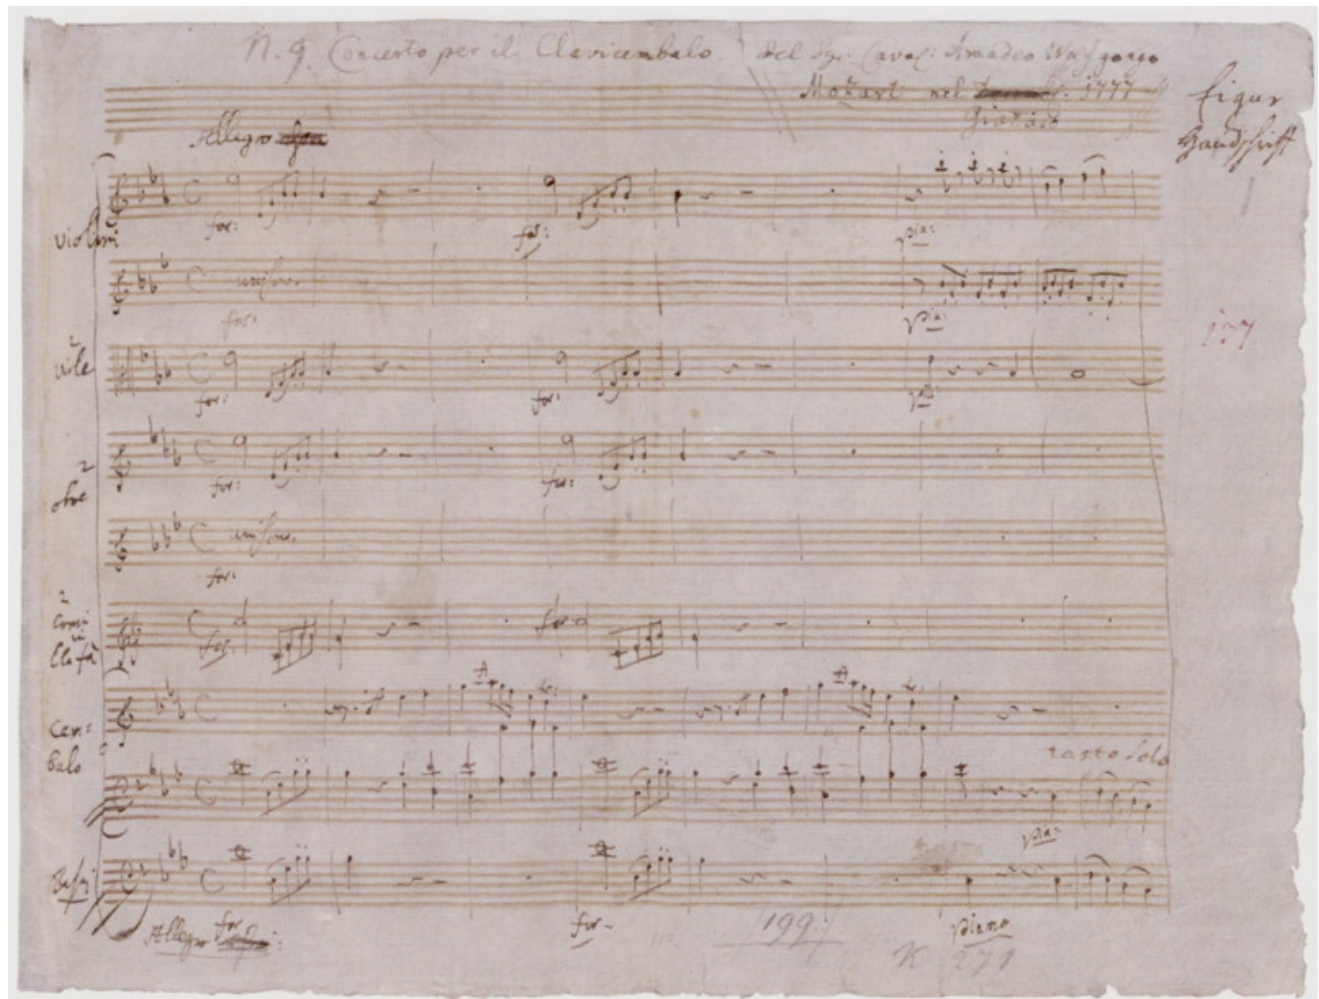 N. 9. Concerto per il Clavicembalo. Del Sgr. Caval: Amadeo Wolfgango
Mozart nel 1777
Giannaio
Eigne
Handschrift
Allegro
Violini
for:
for:
pia:
unisono.
for:
pia:
2
viole
for:
for:
pia:
2
oboe
for:
for:
unisono.
for:
2
Corni
in
Elafà
for:
for:
Cem=
balo
tasto solo
pia:
Bassi
Allegro
for:
for:
piano
199.
K 271